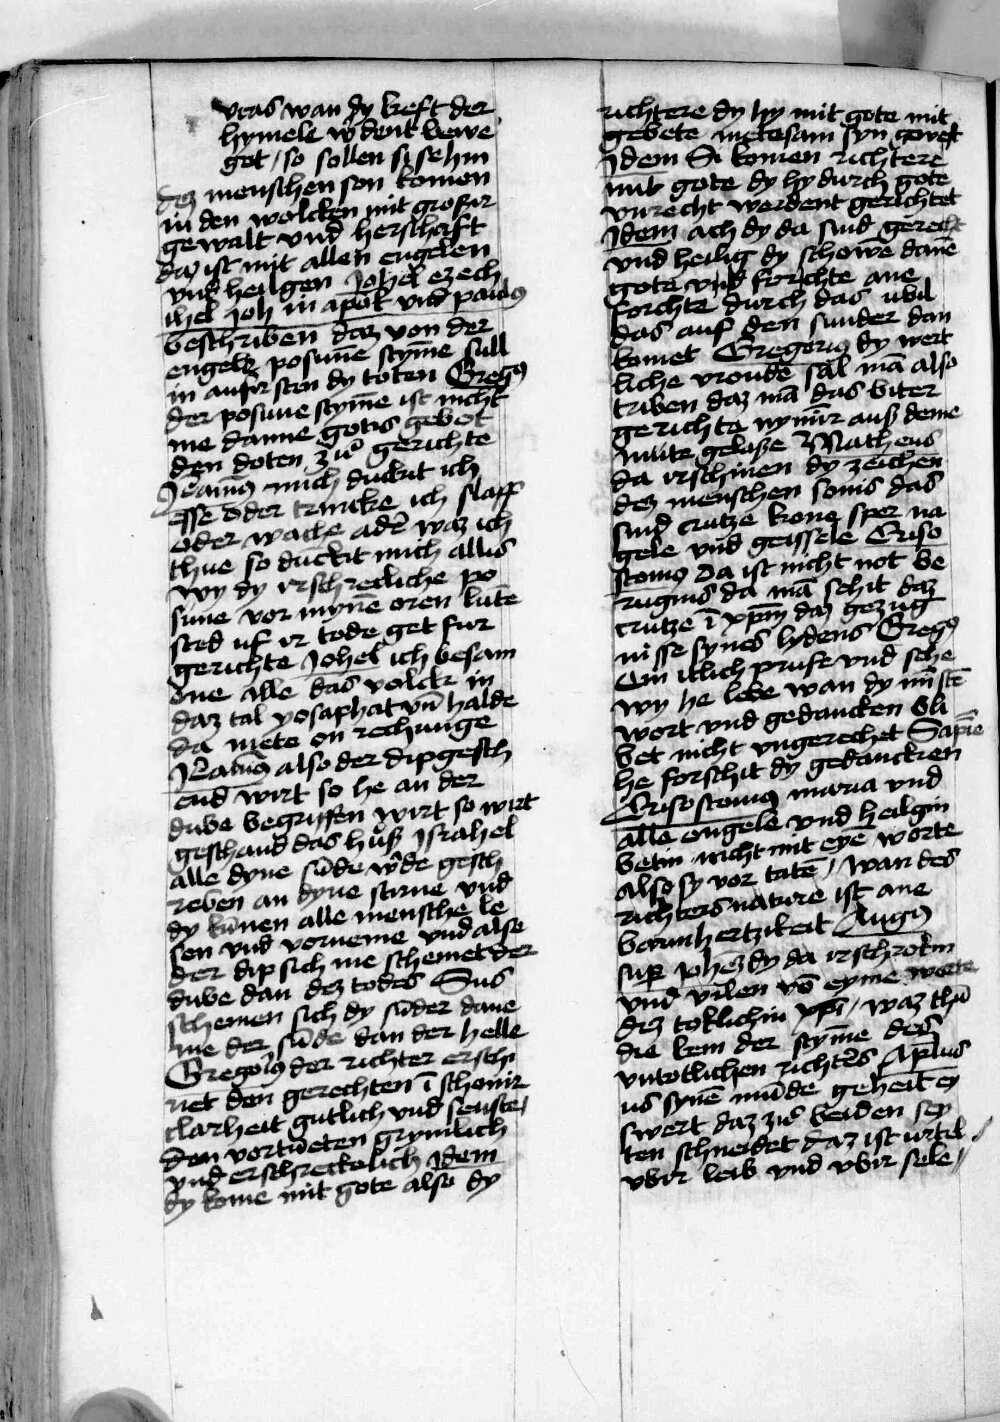 vras wan dy kreft der
hymele w'dent bewe
got / so sollen si sehin
dez menschen son komen
in den wolcken mit groszir
gewalt vnd herschaft
daz ist mit allen engelen
vnd heilgen Johel ezech
ihel Joh in apok vnd paulus
beschriben daz von der
engelz posune styme sull
in aufir sten dy toten Gregus
der posune styme ist nicht
me danne gotis gebot
den doten zu gerichte
Jeronimus mich duckit ich
esse oder trincke ich slaff
oder wache ader waz ich
thue so duckit mich allus
wy dy irschrecliche po
sune vor myne oren lute
sted uf ir tode get fur
gerichte Johel ich besam
one alle das volckr in
daz tal yosaphat vn halde
da mete on rechunge
Jeronimus also der dip gesch
end wirt so he an der
dube begriffen wirt so wirt
geschand das husz Israhel
alle dyne sude w'de gesch
reben an dyne stirne vnd
dy kunen alle mensche le
sen vnd vorneme vnd alse
der dip sich me schemet der
dube dan dez todes Sus
schemen sich dy suder dane
me der sude dan der helle
Gregorius der richter erschi
net den gerechten i schonir
clarheit gutlich vnd senfte /
den vortumeten grymlich
vnd erschreckelich Idem
dy kome mit gote also dy
richtere dy hy mit gote mit
gebete metesam syn gewest
Idem Si komen richtere
mit gote dy hy durch gote
vnrecht werdent gerichtet
Idem ach dy da sind gerecht
vnd heilig dy schowe dane
gote vnd forchte ane
forchte durch das ubil
das auf den sunder dan
komet Gregorius dy wert
liche vroude sal ma also
triben daz ma das biter
gerichte nymir ausz deme
mute gelasze Matheus
da irschinen dy zeichen
dez menschen sonis das
sind crutze krone sper na
gele vnd geissele Criso
stomus da ist nicht not be
rugnis da ma sehit daz
crutze i xpm daz gezug
nisse synes lydens Gregus
Ein itlich prufe vnd sehe
wy he lebe wan dy minste
wort vnd gedancken bli
bet nicht vngerechet Sapie
he forschit dy gedanckren
Crisostomus maria vnd
alle engele vnd heilgin
betin nicht mit eye worte
also sy vor tate / wan des
richters nature ist ane
barmhertzikeit Augus
sup Johez dy da irschrokin
vnd vilen vo eyme worte
dez toklichin xpi / waz thu
die kem der styme des
vntotlichen richters Aplus
us syne mude geheit ey
swert daz zu beiden sey
ten schneidet daz ist urtel
vbir leib vnd vbir sele /